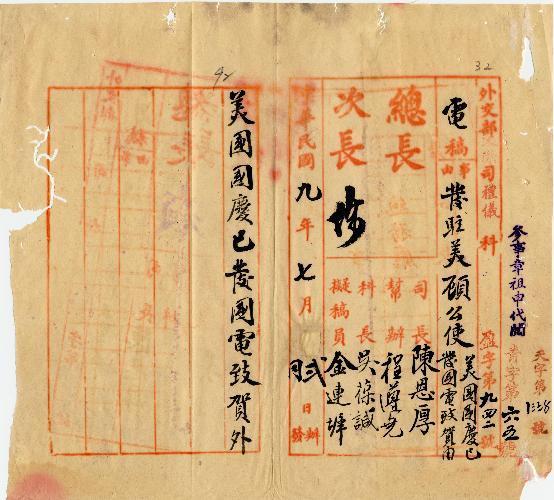 32
天字第1338號
青字第六五號
參事章祖申代閱
外交部 司禮儀 科 盈字第九四二號
電稿
事由
發駐美顧公使
美國國慶已
發國電致賀由
總長
次長
司長 陳恩厚
幫辦 程遵堯
科長 吳葆諴
擬稿員 金連墀
中華民國九年七月 弍日辦發
92
美國國慶已發國電致賀外